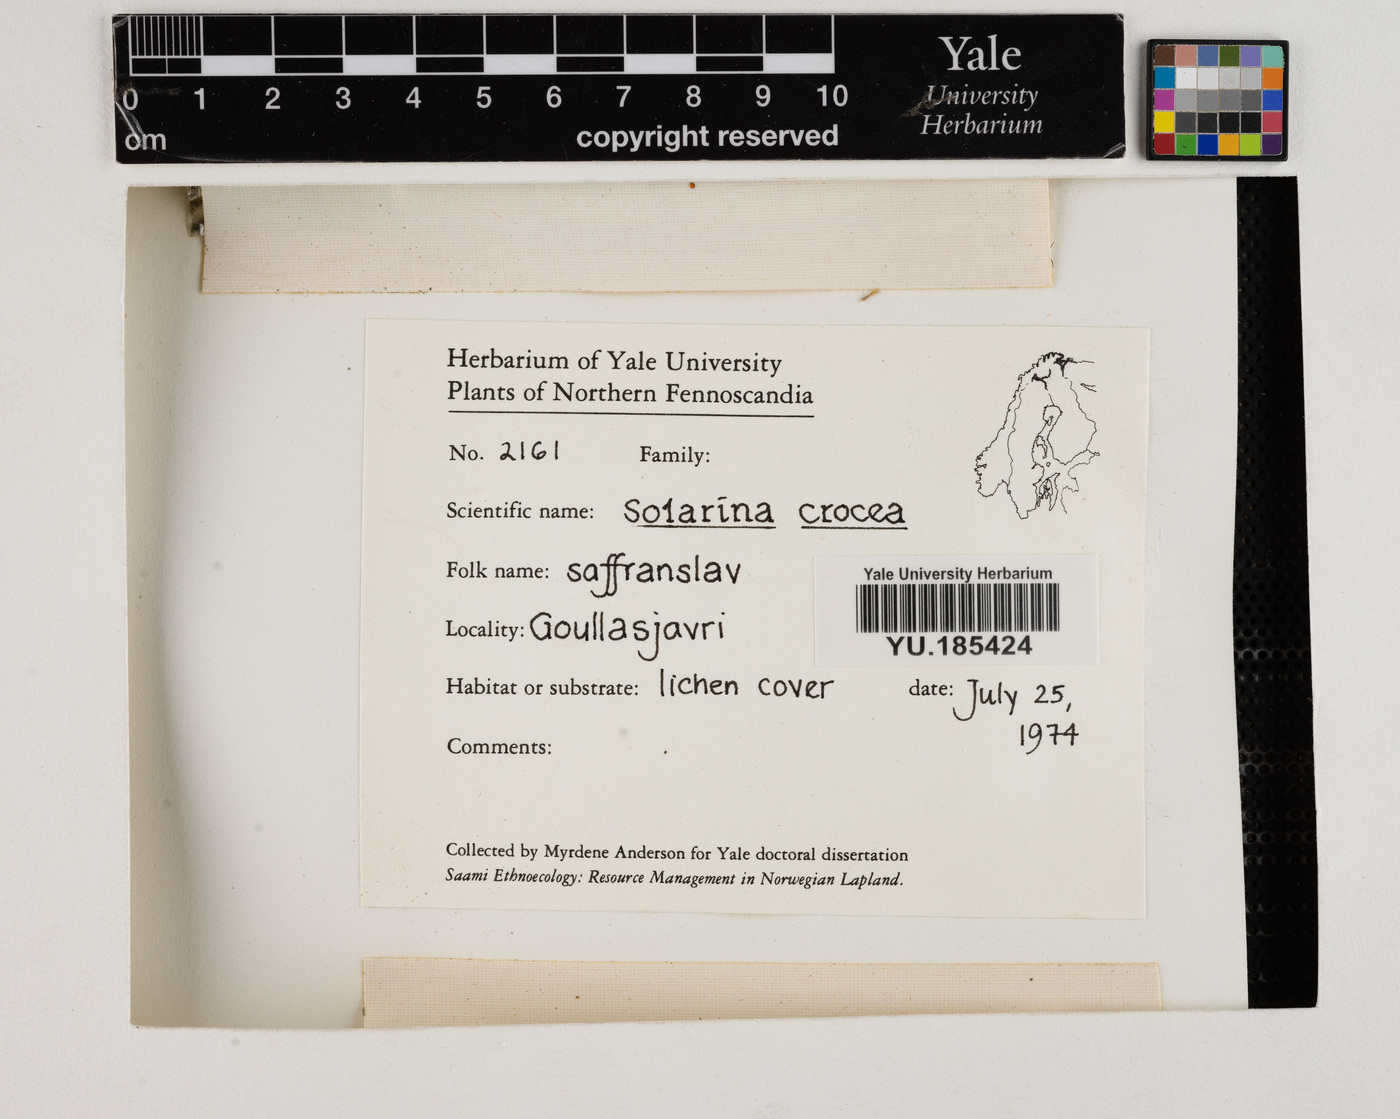 0 1 2 3 4 5 6 7 8 9 10
cm
copyright reserved
Yale
University
Herbarium
Herbarium of Yale University
Plants of Northern Fennoscandia
No. 2161 Family:
Scientific name: Solarina crocea
Folk name: saffranslav
Yale University Herbarium
YU.185424
Locality: Goullasjavri
Habitat or substrate: lichen cover date: July 25,
1974
Comments:
Collected by Myrdene Anderson for Yale doctoral dissertation
Saami Ethnoecology: Resource Management in Norwegian Lapland.